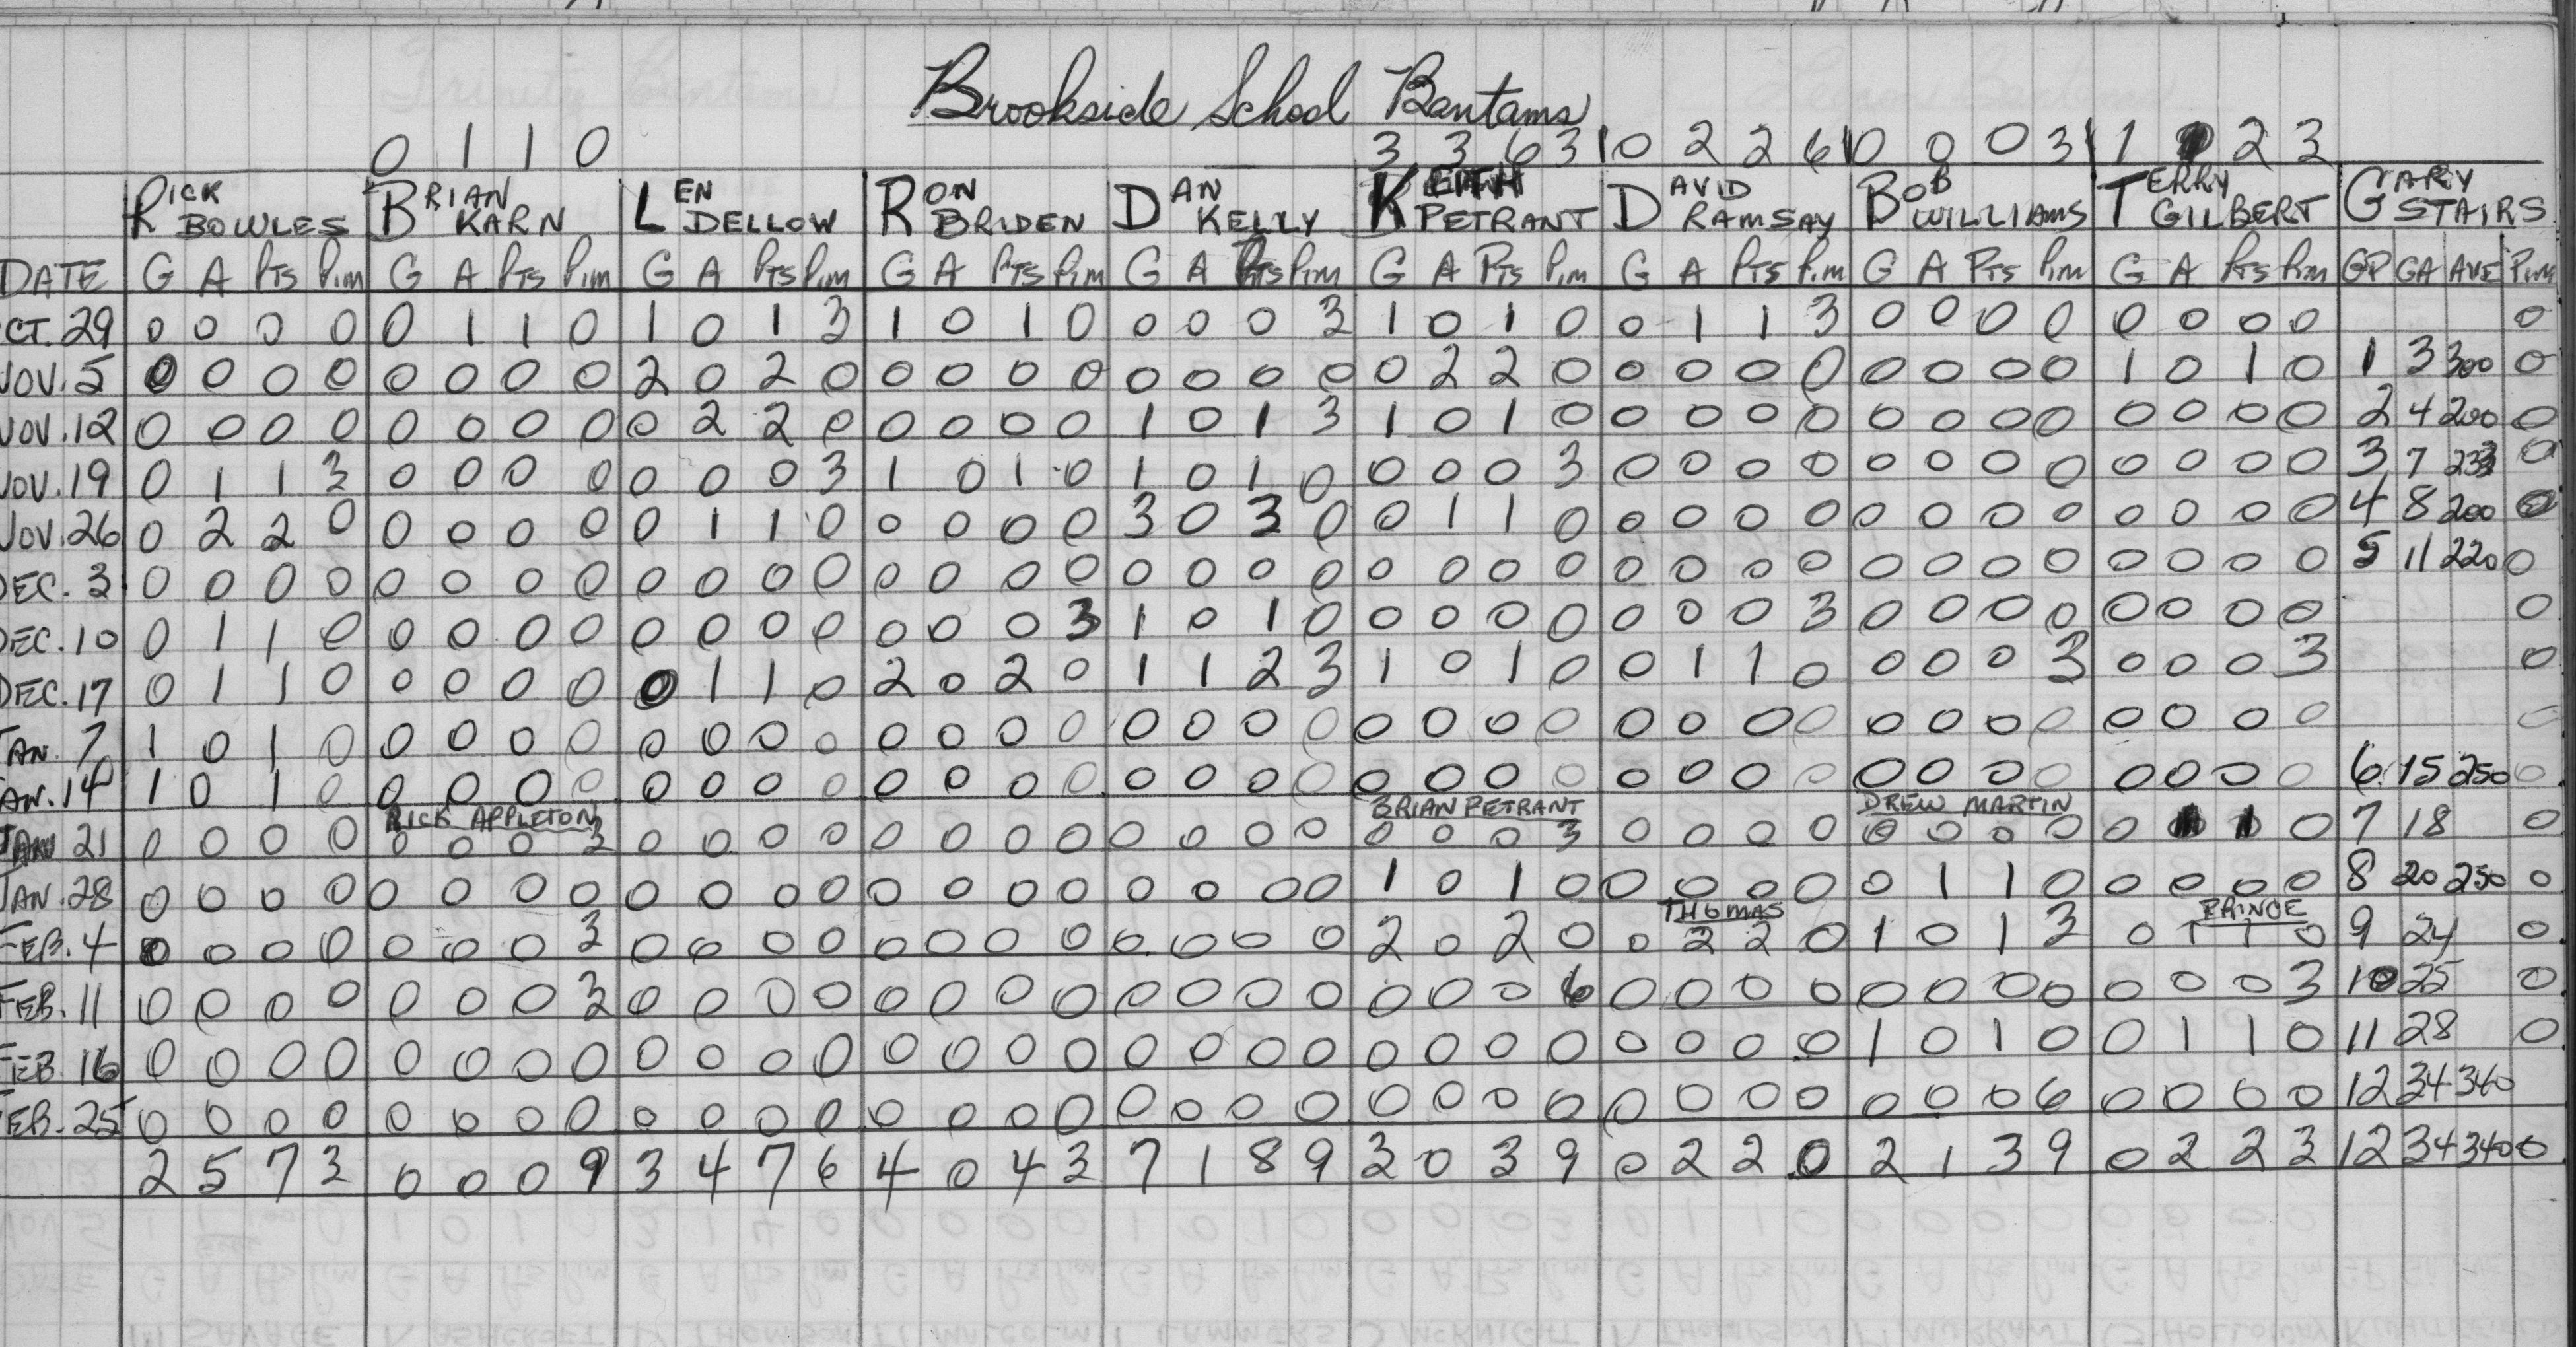 Brookside School Bantams
0 1 1 0 3 3 6 3 0 2 2 6 0 0 0 3 1 2 3
RICK BOWLES BRIAN KARN LEN DELLOW RON BRIDEN DAN KELLY KEITH PETRANT DAVID RAMSAY BOB WILLIAMS TERRY GILBERT GARY STAIRS
DATE G A PTS Pim G A PTS Pim G A PTS Pim G A PTS Pim G A PTS Pim G A PTS Pim G A PTS Pim G A PTS Pim G A PTS Pim GP GA AVE Pim
CT. 29 0 0 0 0 0 1 1 0 1 0 1 3 1 0 1 0 0 0 0 3 1 0 1 0 0 1 1 3 0 0 0 0 0 0 0 0 0
NOV. 5 0 0 0 0 0 0 0 0 2 0 2 0 0 0 0 0 0 0 0 0 0 2 2 0 0 0 0 0 0 0 0 0 1 0 1 0 1 3 300 0
NOV. 12 0 0 0 0 0 0 0 0 0 2 2 0 0 0 0 0 1 0 1 3 1 0 1 0 0 0 0 0 0 0 0 0 0 0 0 0 2 4 200 0
NOV. 19 0 1 1 3 0 0 0 0 0 0 0 3 1 0 1 0 1 0 1 0 0 0 0 3 0 0 0 0 0 0 0 0 0 0 0 0 3 7 233 0
NOV. 26 0 2 2 0 0 0 0 0 0 1 1 0 0 0 0 0 3 0 3 0 0 1 1 0 0 0 0 0 0 0 0 0 0 0 0 0 4 8 200 0
DEC. 3 0 0 0 0 0 0 0 0 0 0 0 0 0 0 0 0 0 0 0 0 0 0 0 0 0 0 0 0 0 0 0 0 0 0 0 0 5 11 220 0
DEC. 10 0 1 1 0 0 0 0 0 0 0 0 0 0 0 0 3 1 0 1 0 0 0 0 0 0 0 0 3 0 0 0 0 0 0 0 0 0
DEC. 17 0 1 1 0 0 0 0 0 0 1 1 0 2 0 2 0 1 1 2 3 1 0 1 0 0 1 1 0 0 0 0 3 0 0 0 3 0
JAN. 7 1 0 1 0 0 0 0 0 0 0 0 0 0 0 0 0 0 0 0 0 0 0 0 0 0 0 0 0 0 0 0 0 0 0 0 0 0
AN. 14 1 0 1 0 0 0 0 0 0 0 0 0 0 0 0 0 0 0 0 0 0 0 0 0 0 0 0 0 0 0 0 0 0 0 0 0 6 15 250 0
RICK APPLETON BRIAN PETRANT DREW MARTIN
JAN 21 0 0 0 0 0 0 0 3 0 0 0 0 0 0 0 0 0 0 0 0 0 0 0 3 0 0 0 0 0 0 0 0 0 1 1 0 7 18 0
JAN. 28 0 0 0 0 0 0 0 0 0 0 0 0 0 0 0 0 0 0 0 0 1 0 1 0 0 0 0 0 0 1 1 0 0 0 0 0 8 20 250 0
THOMAS PRINCE
FEB. 4 0 0 0 0 0 0 0 3 0 0 0 0 0 0 0 0 0 0 0 0 2 0 2 0 0 2 2 0 1 0 1 3 0 1 1 0 9 24 0
FEB. 11 0 0 0 0 0 0 0 3 0 0 0 0 0 0 0 0 0 0 0 0 0 0 0 6 0 0 0 0 0 0 0 0 0 0 0 3 10 25 0
FEB. 16 0 0 0 0 0 0 0 0 0 0 0 0 0 0 0 0 0 0 0 0 0 0 0 0 0 0 0 0 1 0 1 0 0 1 1 0 11 28 0
FEB. 25 0 0 0 0 0 0 0 0 0 0 0 0 0 0 0 0 0 0 0 0 0 0 0 0 0 0 0 0 0 0 0 6 0 0 0 0 12 34 340
2 5 7 3 0 0 0 9 3 4 7 6 4 0 4 3 7 1 8 9 3 0 3 9 0 2 2 0 2 1 3 9 0 2 2 3 12 34 340 0